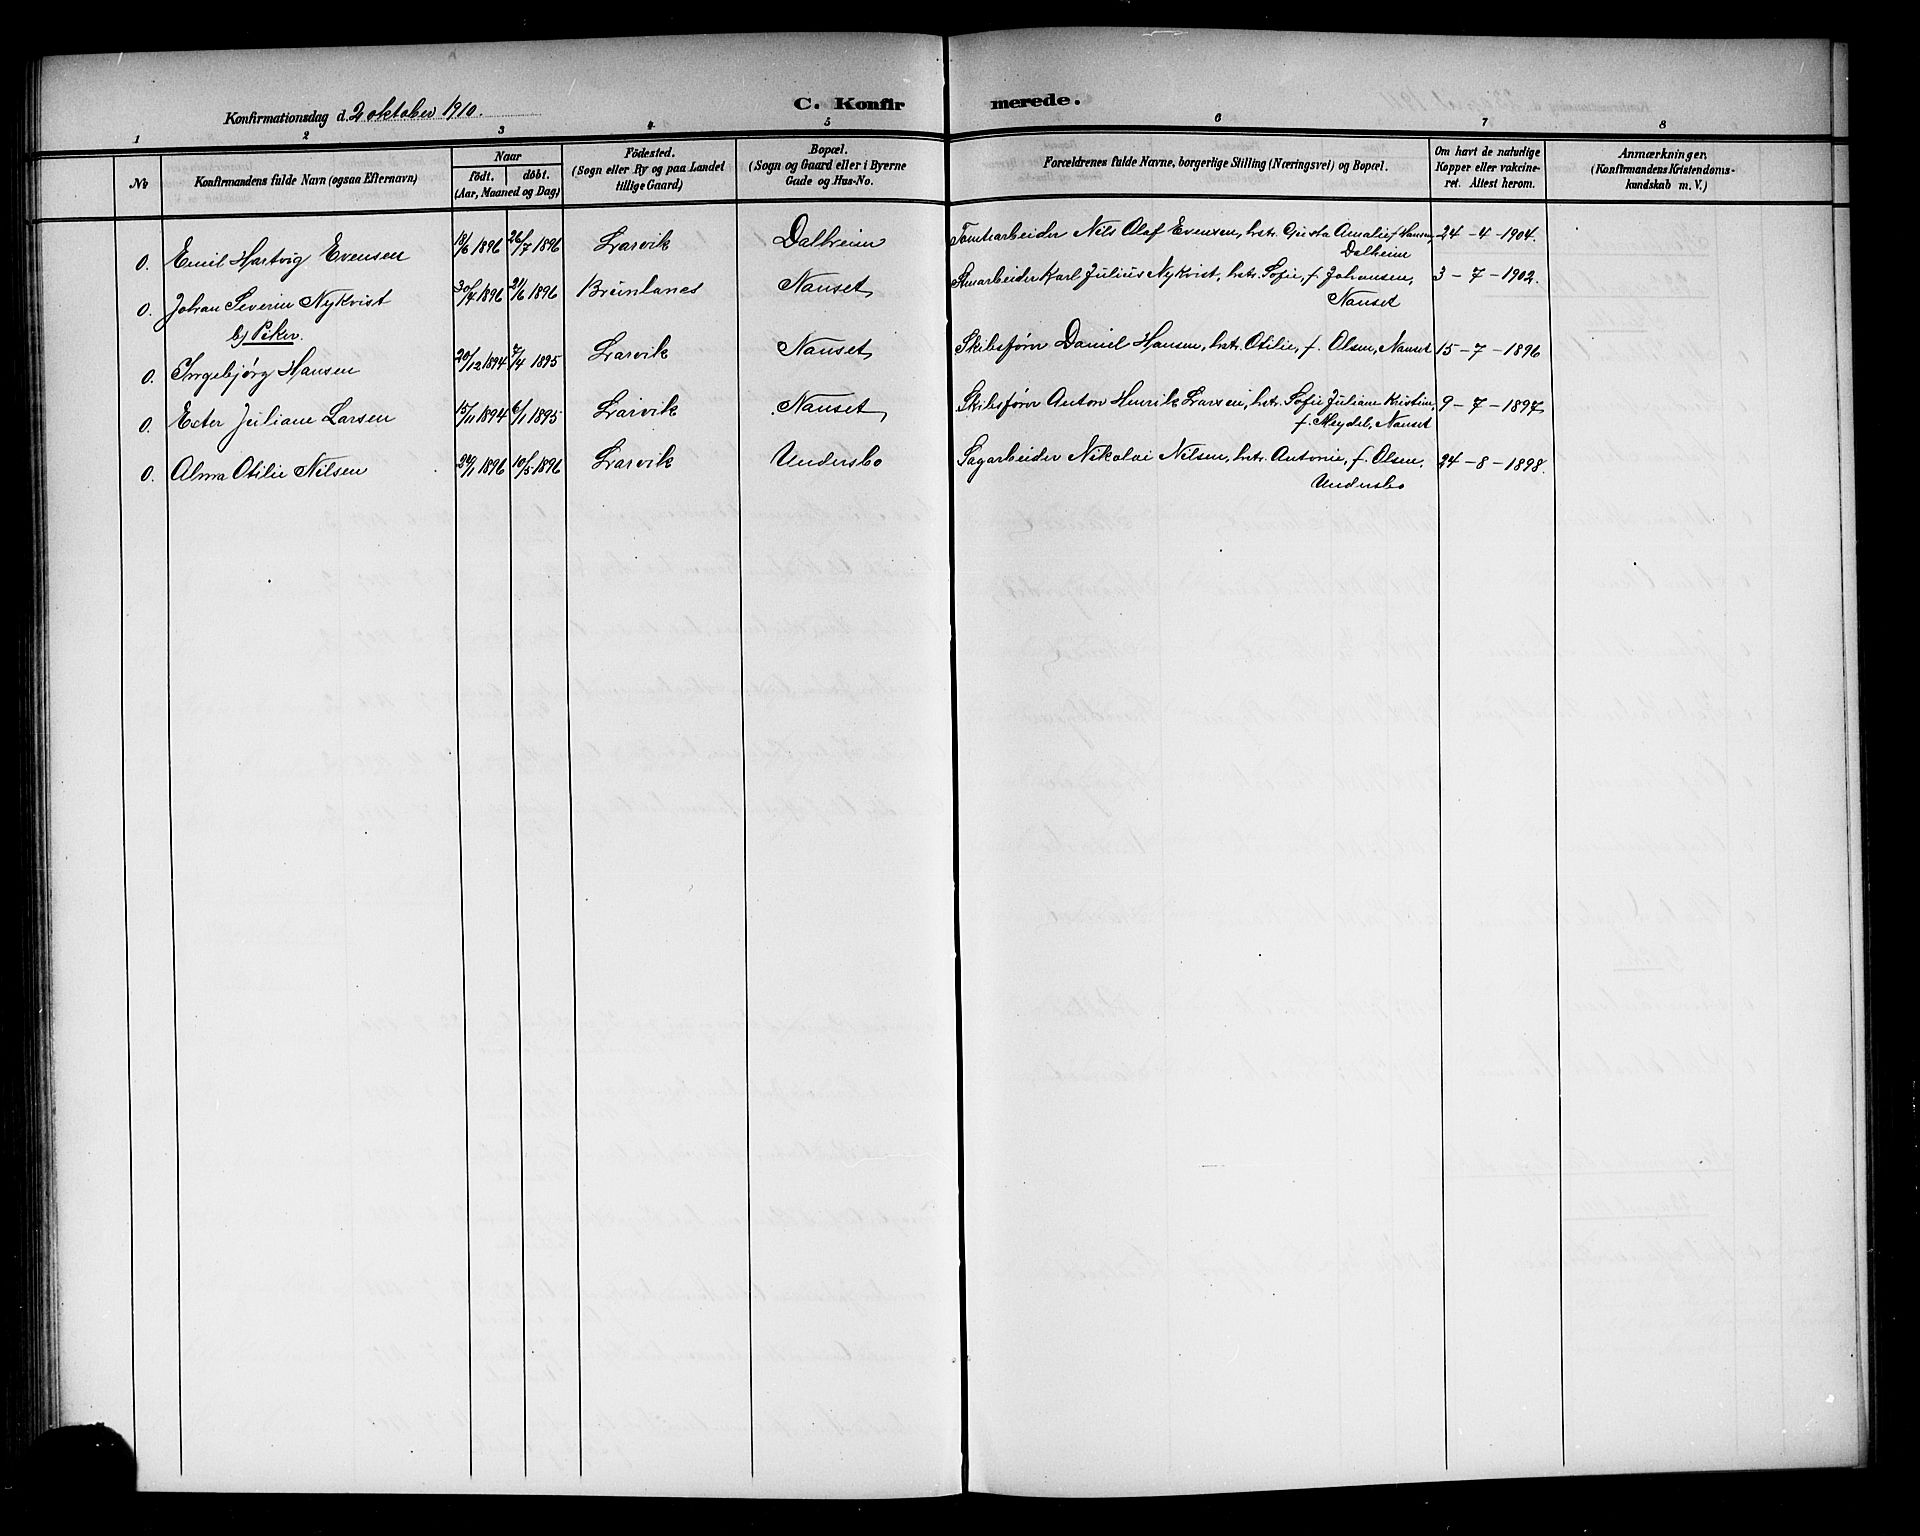 Konfirmationsdag d. 2 oktober 1910.
C. Konfirmerede.
1 2 3 4 5 6 7 8
No
Konfirmandens fulde Navn (ogsaa Efternavn)
Naar
Födt. döbt.
(Aar, Maaned og Dag)
Födested.
(Sogn eller By og paa Landet
tillige Gaard)
Bopæl.
(Sogn og Gaard eller i Byerne
Gade og Hus-No.
Forældrenes fulde Navne, borgerlige Stilling (Næringsvei) og Bopæl.
Om havt de naturlige
Kopper eller vakcine-
ret. Attest herom.
Anmærkninger.
(Konfirmandens Kristendoms-
kundskab m. V.)
0. Emil Hartvig Evensen 18/6 1896 26/7 1896 Larvik Dalheim Tomtearbeider Nils Olaf Evensen, hstr. Gusta Amalie f. Hansen, 24-4-1904.
Dalheim
0. Johan Severin Nykvist 30/4 1896 21/6 1896 Brunlanes Nanset Karl Julius Nykvist, hstr. Sofie, f. Johansen, 3-7-1902.
Nanset
b) Piker.
0. Ingebjørg Hansen 20/12 1894 7/4 1895 Larvik Nanset Skibsfører Daniel Hansen, hstr. Otilie, f. Olsen, Nanset 15-7-1896
0. Ester Juliane Larsen 15/11 1894 6/1 1895 Larvik Nanset Skibsfører Anton Henrik Larsen, hstr. Sofie Juliane Kristine, 9-7-1897
f. Meydel, Nanset
0. Alma Otilie Nilsen 1896 10/5 1896 Larvik Undersbo Sagarbeider Nikolai Nilsen, hstr. Antonie, f. Olsen, 24-8-1898.
Undersbo